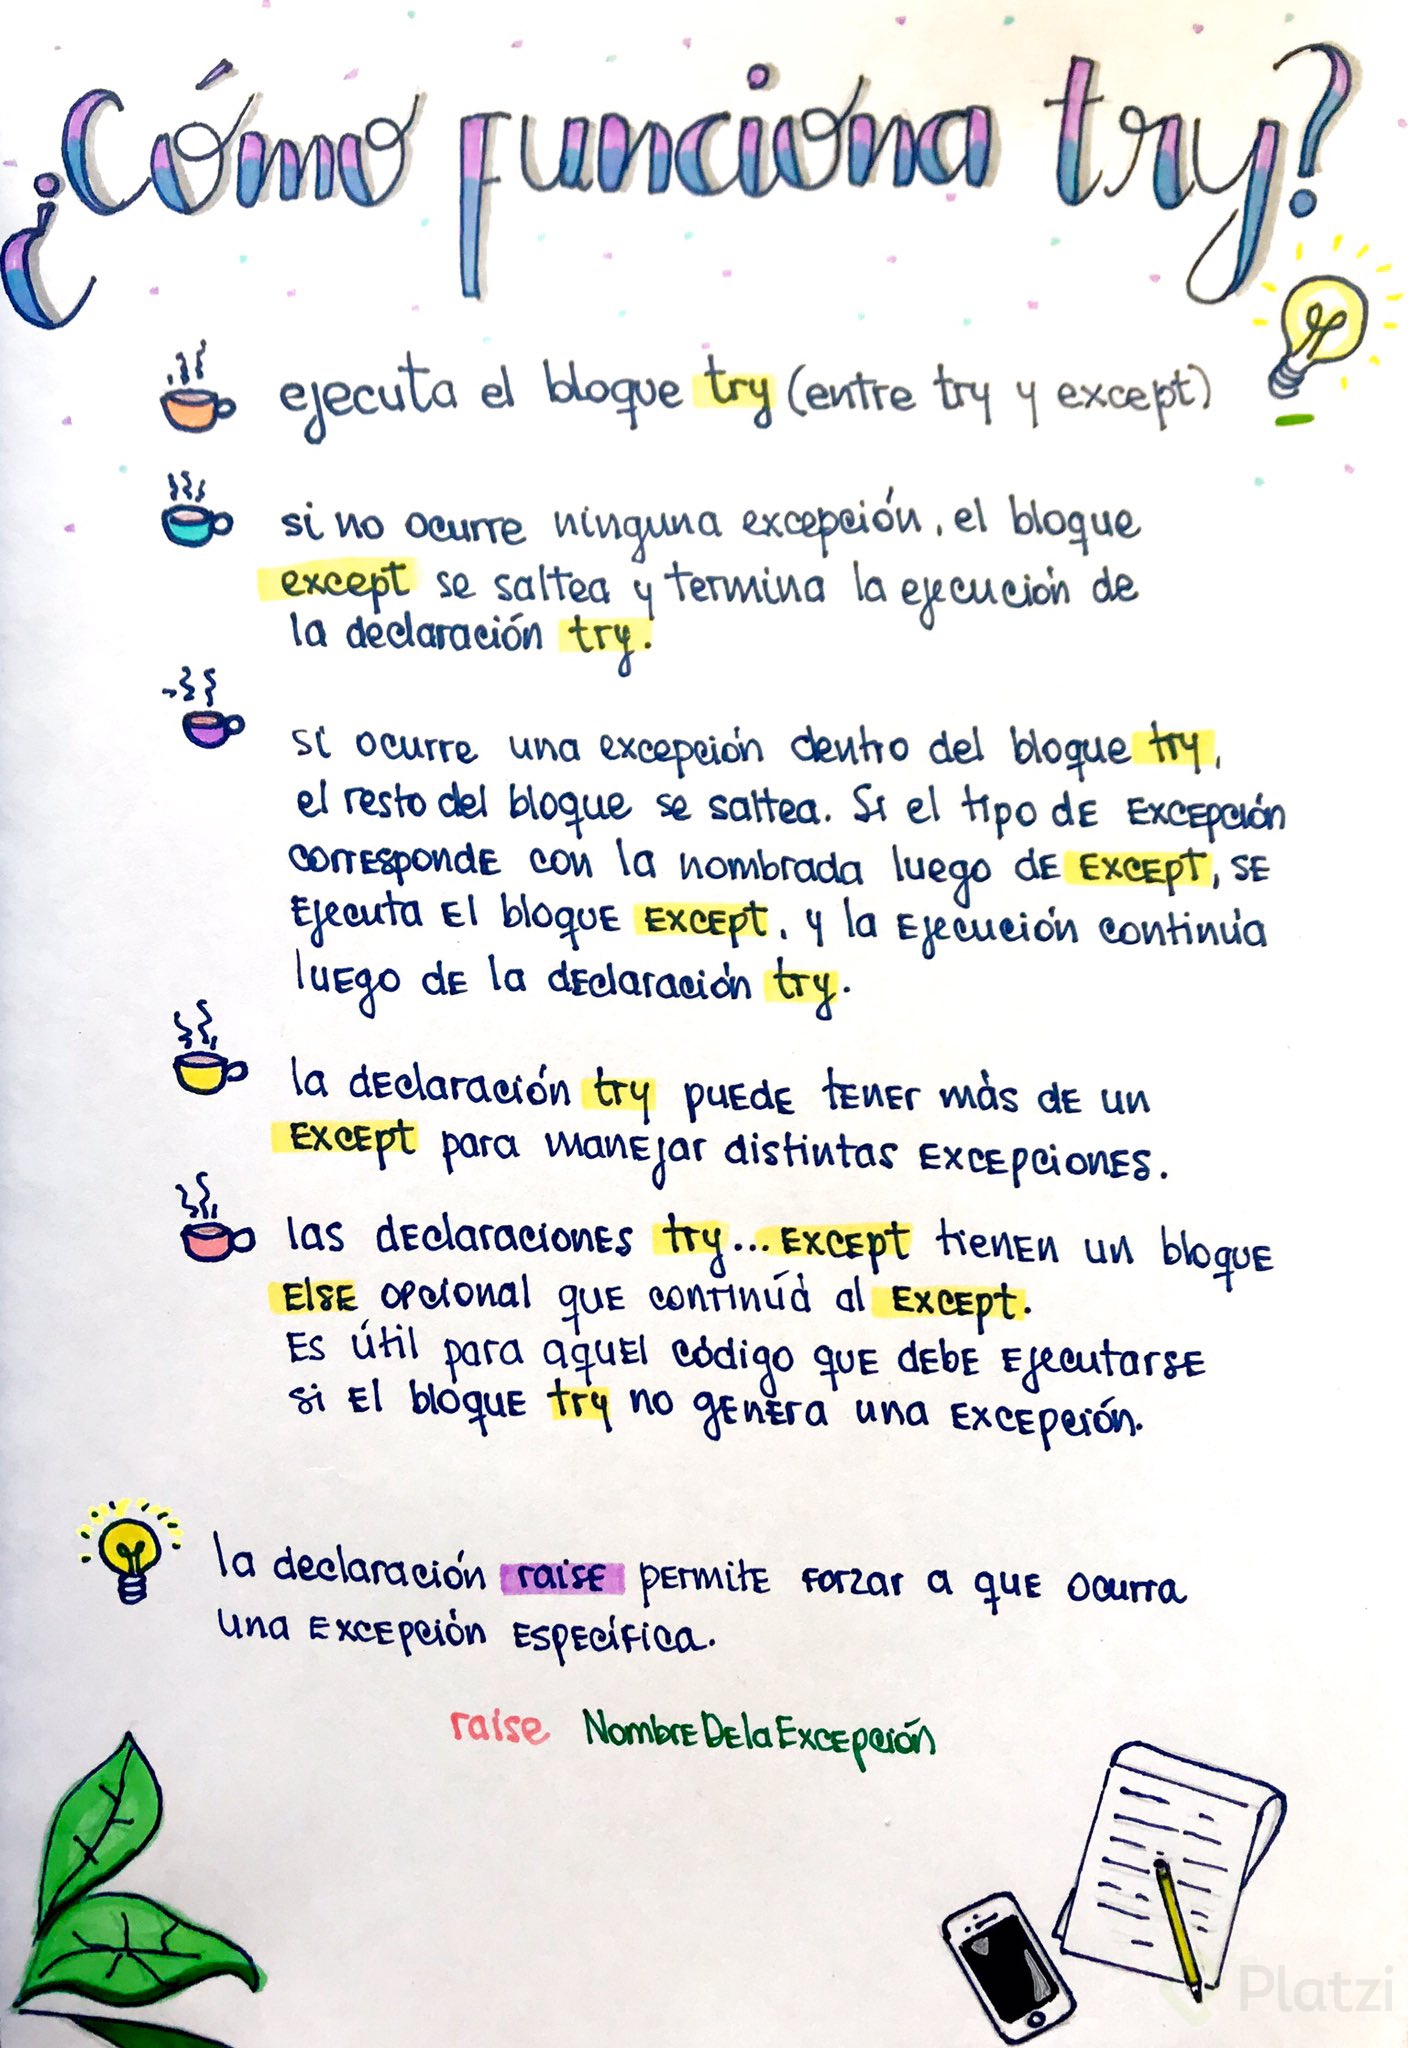 ¿Cómo funciona try?
ejecuta el bloque try (entre try y except)
si no ocurre ninguna excepción, el bloque
except se saltea y termina la ejecución de
la declaración try.
si ocurre una excepción dentro del bloque try,
el resto del bloque se saltea. Si el tipo de Excepción
corresponde con la nombrada luego de Except, se
Ejecuta El bloque Except, y la Ejecución continúa
luego de la declaración try.
la declaración try puede tener más de un
Except para manejar distintas Excepciones.
las declaraciones try... Except tienen un bloque
Else opcional que continúa al Except.
Es útil para aquel código que debe Ejecutarse
si El bloque try no genera una Excepción.
la declaración raise permite forzar a que ocurra
una Excepción Específica.
raise NombreDelaExcepción
Platzi